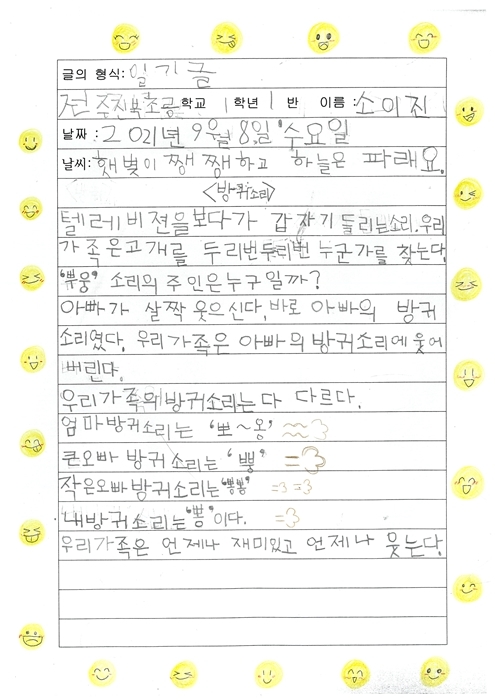 글의 형식: 일기글
전주진북초등학교 1학년 1반 이름: 소이진
날짜: 2021년 9월 8일 수요일
날씨: 햇빛이 쨍쨍하고 하늘은 파래요.
<방귀소리>
텔레비젼을보다가 갑자기 들리는소리. 우리
가족은고개를 두리번두리번 누군가를 찾는다.
"뿌웅" 소리의 주인은누구일까?
아빠가 살짝 웃으신다. 바로 아빠의 방귀
소리였다. 우리가족은 아빠의방귀소리에웃어
버린다.
우리가족의방귀소리는다 다르다.
엄마방귀소리는 '뽀~옹'
큰오빠 방귀소리는 '뿡'
작은오빠방귀소리는'뽕뽕'
내방귀소리는'뽕'이다.
우리가족은 언제나 재미있고 언제나 웃는다.